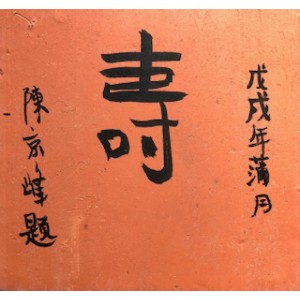 戊戌年蒲月
壽
陳京峰題